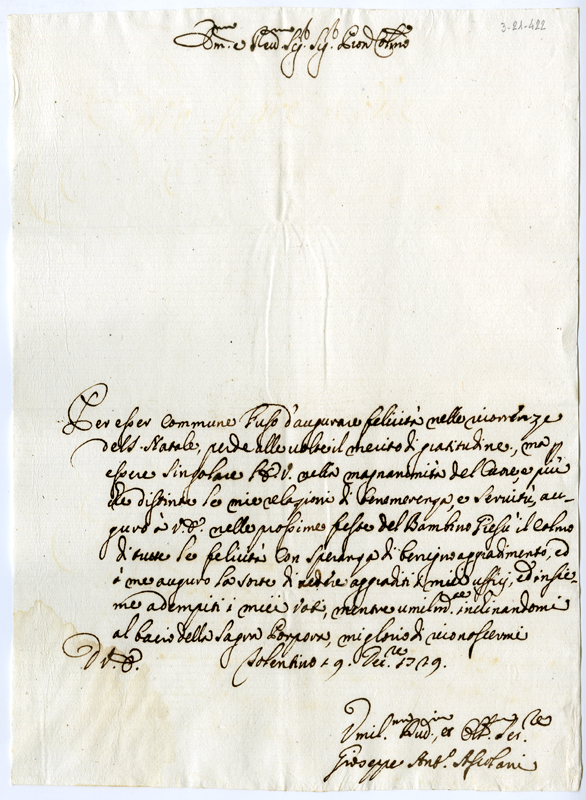 3-21-422
Em.mo e Rev.mo Sig.r Sig.r Pron Colmo
Per esser commune l'uso d'augurare felicità nelle ricorrenze
del S. Natale, perde alle volte il merito di gratitudine, ma p
essere singolare l'E.V. nella magnanimità del Cuore, e più
che distinte le mie relazioni di benemerenza, e servitù, au-
guro à V.E. nelle prossime feste del Bambino Giesù il Colmo
di tutte le felicità con speranza di benigno aggradimento, ed
à me auguro la sorte di vedere aggraditi i miei uffizij, ed insie-
me adempiti i miei voti, mentre umilm.te inclinandomi
al bacio della Sagra Porpora, mi glorio di riconoscermi
D V.E. Tolentino 19. Dec.re 1729.
Umil.mo Dev.mo, et Obb. Ser.re
Giuseppe Ant.o Ascolani